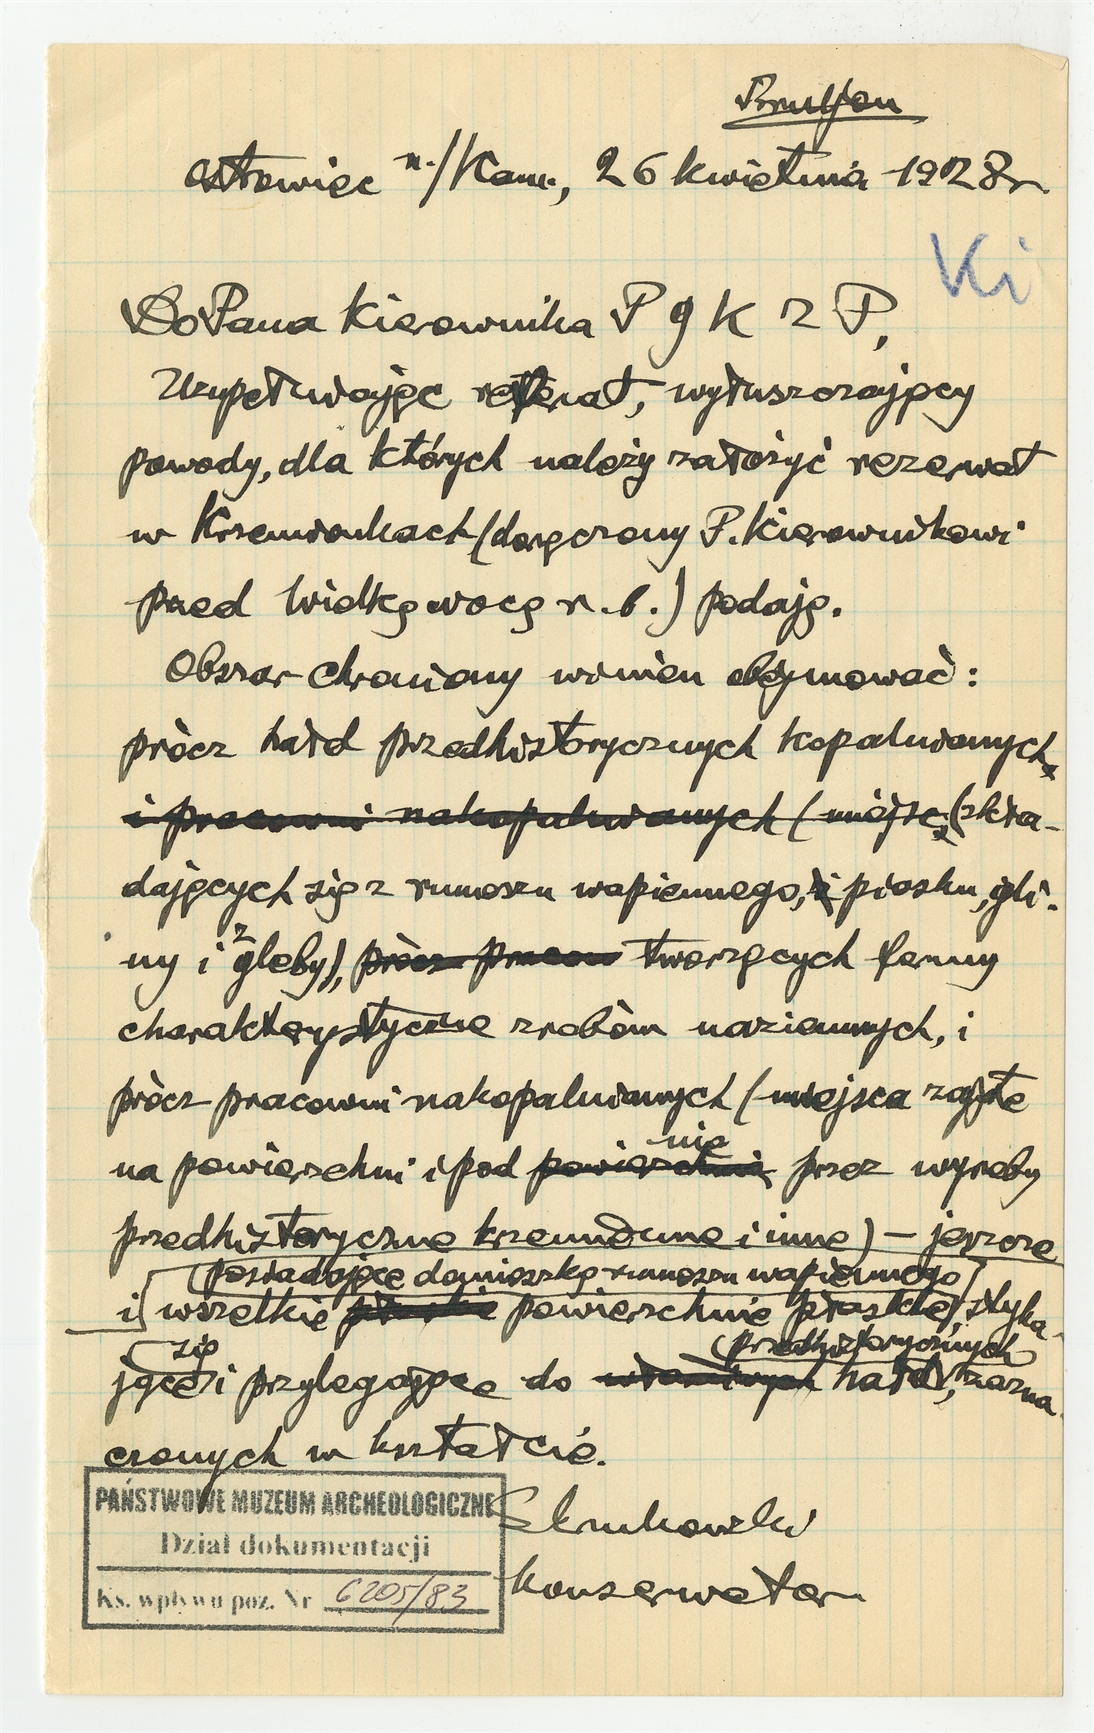 Bruljon
Ostrowiec n./Kam., 26 kwietnia 1928 r.
Ki
Do Pana Kierownika P G K Z P,
Uzupełniając referat, wyłuszczający
powody, dla których należy założyć rezerwat
w Krzemionkach (doręczony P. Kierownikowi
przed Wielkąnocą r. b.) podaję.
Obszar chroniony winien obejmować:
prócz hałd przedhistorycznych kopalnianych,
i pracowni nakopalnianych (miejsc (skła-
dających się z rumoszu wapiennego, i piasku, gli-
ny i z gleby), prócz pracow tworzących formy
charakterystyczne zrobów naziemnych, i
prócz pracowni nakopalnianych (miejsca zajęte
na powierzchni i pod powierzchnią nią przez wyroby
przedhistoryczne krzemienne i inne) – jeszcze
posiadające domieszkę rumoszu wapiennego
i wszelkie powierzchnie płaskie, styka-
się przedhistorycznych
jące i przylegające do właściwych hałd, zazna-
czonych w kształcie.
S Krukowski
konserwator
PAŃSTWOWE MUZEUM ARCHEOLOGICZNE
Dział dokumentacji
Ks. wpływu poz. Nr 6205/83